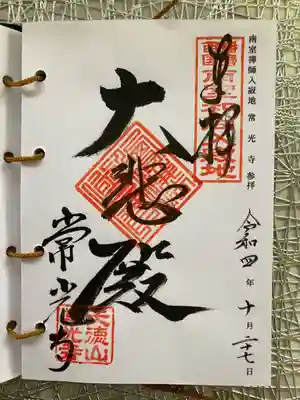 南室禅師入寂地 常光寺参拝
奉拝
大悲殿
常光寺
令和四年十月二十七日
天徳山
常光寺